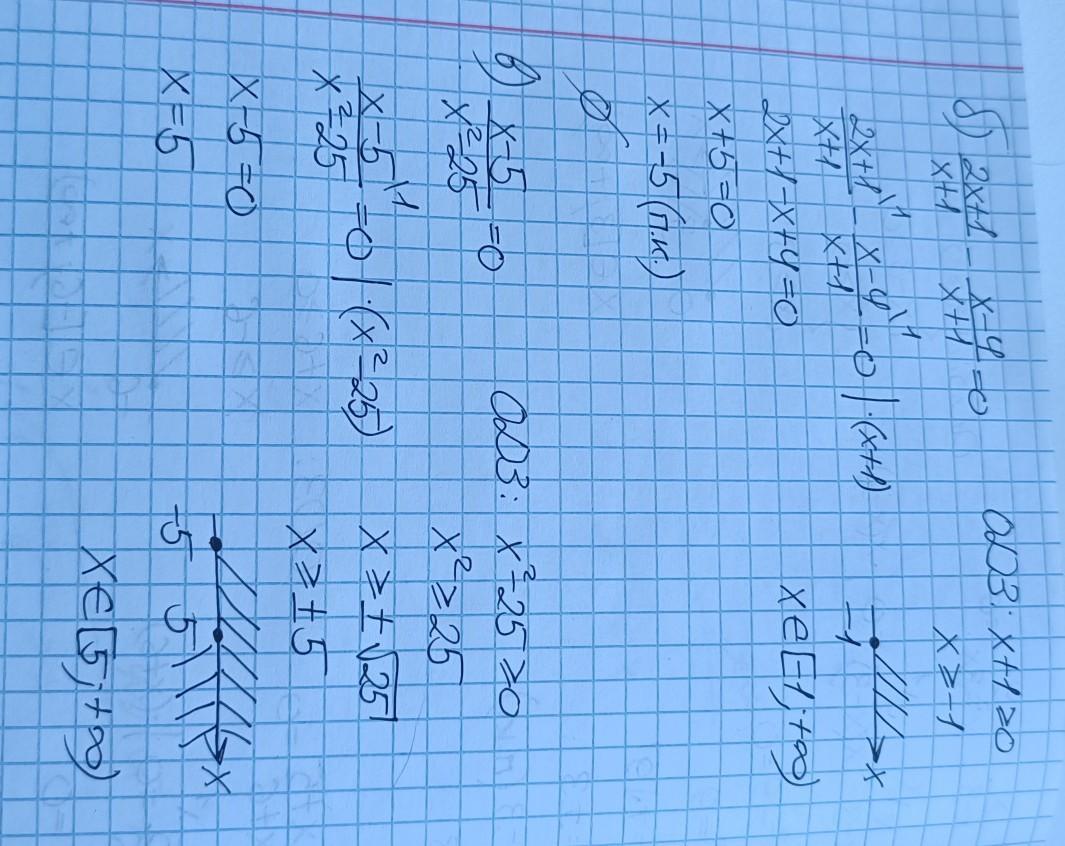 б) (2x+1)/(x+1) - (x-4)/(x+1) = 0
ОДЗ: x+1≥0
x≥-1
(2x+1\1)/(x+1) - (x-4\1)/(x+1) = 0 |·(x+1)
-1 x
2x+1-x+4=0
x∈[-1;+∞)
x+5=0
x=-5(п.к.)
∅
в) (x-5)/(x²-25) = 0
ОДЗ: x²-25≥0
x²≥25
(x-5\1)/(x²-25) = 0 |·(x²-25)
x≥±√25
x≥±5
x-5=0
-5 5 x
x=5
x∈[5;+∞)